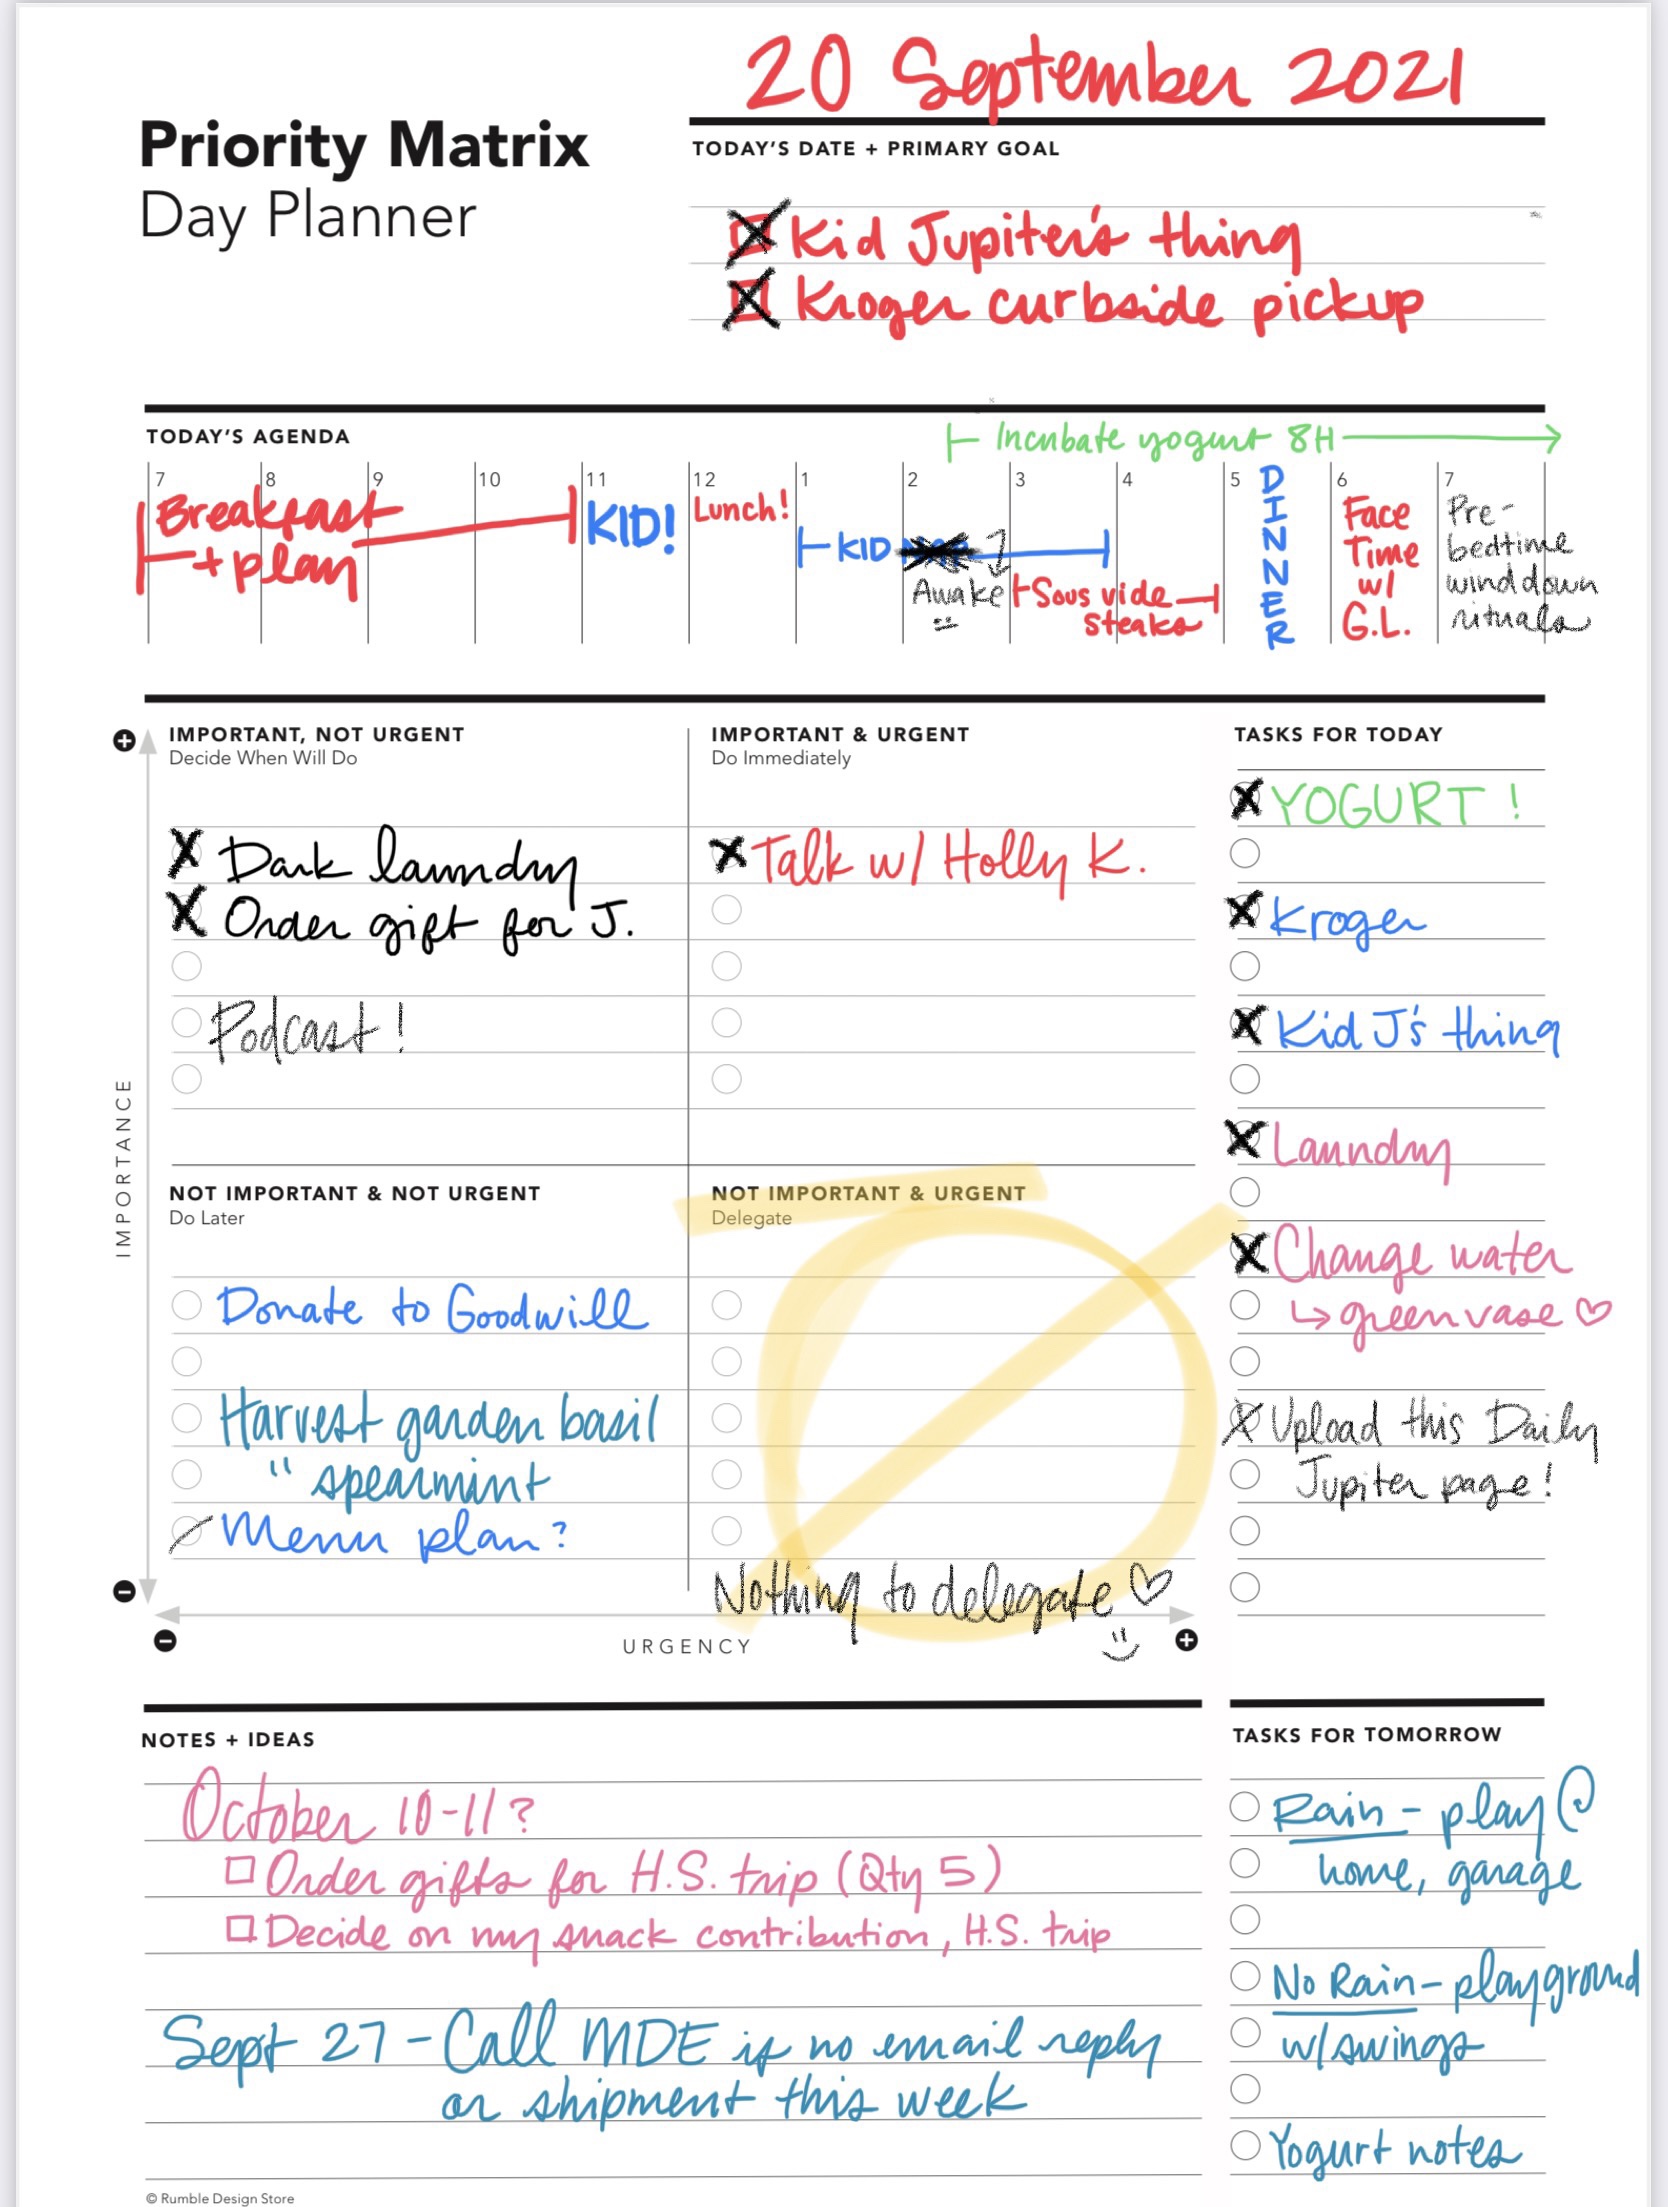 20 September 2021
Priority Matrix
Day Planner
TODAY'S DATE + PRIMARY GOAL
Kid Jupiter's thing
Kroger curbside pickup
TODAY'S AGENDA
Incubate yogurt 8H
7 8 9 10 11 12 1 2 3 4 5 6 7
Breakfast
+ plan
KID!
Lunch!
KID
Awake
Sous vide
steaks
DINNER
Face
Time
w/
G.L.
Pre-
bedtime
wind down
rituals
IMPORTANT, NOT URGENT
Decide When Will Do
Dark laundry
Order gift for J.
Podcast!
IMPORTANT & URGENT
Do Immediately
Talk w/ Holly K.
NOT IMPORTANT & NOT URGENT
Do Later
Donate to Goodwill
Harvest garden basil
" spearmint
Menu plan?
NOT IMPORTANT & URGENT
Delegate
Nothing to delegate
IMPORTANCE
URGENCY
TASKS FOR TODAY
YOGURT!
Kroger
Kid J's thing
Laundry
Change water
green vase
Upload this Daily
Jupiter page!
NOTES + IDEAS
October 10-11?
Order gifts for H.S. trip (Qty 5)
Decide on my snack contribution, H.S. trip
Sept 27 - Call MDE if no email reply
or shipment this week
TASKS FOR TOMORROW
Rain - play @
home, garage
No Rain - playground
w/swings
Yogurt notes
© Rumble Design Store